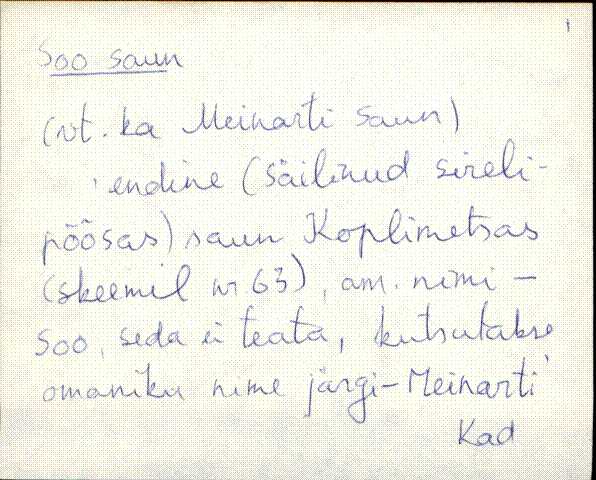 Soo saun
(vt. ka Meinarti saun)
endine (säilinud sireli-
põõsas) saun Koplimetsas
(skeemil nr 63), am. nimi –
Soo, seda ei teata, kutsutakse
omaniku nime järgi – Meinarti
Kad